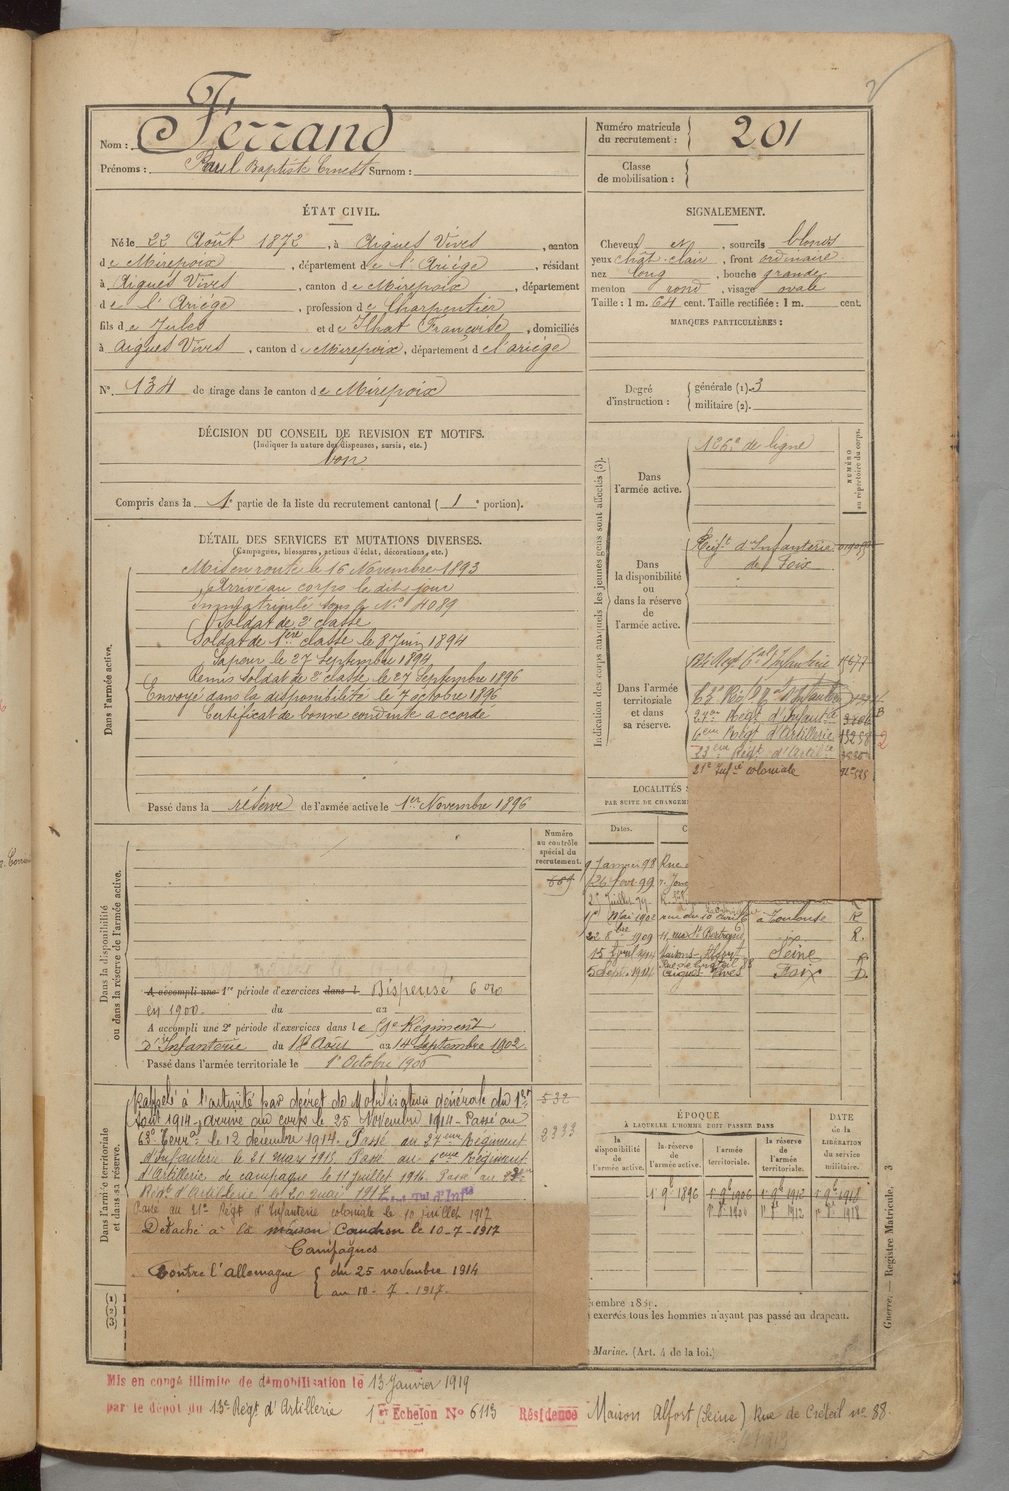 2
Nom : Ferrand
Prénoms : Paul Baptiste Ernest Surnom :
Numéro matricule du recrutement : 201
Classe de mobilisation :
ÉTAT CIVIL.
Né le 22 Août 1872, à Aigues Vives, canton
de Mirepoix, département de l'Ariége, résidant
à Aigues Vives, canton de Mirepoix, département
de l'Ariége, profession de Charpentier
fils de Jules et de Ilhat Françoise, domiciliés
à Aigues Vives, canton de Mirepoix, département de l'ariége
N° 134 de tirage dans le canton de Mirepoix
SIGNALEMENT.
Cheveux et, sourcils blonds
yeux chât-clair, front ordinaire
nez long, bouche grande
menton rond, visage ovale
Taille : 1 m. 64 cent. Taille rectifiée : 1 m. cent.
MARQUES PARTICULIÈRES :
Degré d'instruction : générale (1). 3
militaire (2).
DÉCISION DU CONSEIL DE REVISION ET MOTIFS.
(Indiquer la nature des dispenses, sursis, etc.)
bon
Compris dans la 1e partie de la liste du recrutement cantonal (1e portion).
DÉTAIL DES SERVICES ET MUTATIONS DIVERSES.
(Campagnes, blessures, actions d'éclat, décorations, etc.)
Dans l'armée active.
Mis en route le 16 Novembre 1893
Arrivé au corps le dit jour
Immatriculé sous le N° 4089
Soldat de 2e classe
Soldat de 1ère classe le 8 Juin 1894
Sapeur le 27 Septembre 1894
Remis soldat de 2e classe le 27 Septembre 1896
Envoyé dans la disponibilité le 7 octobre 1896
Certificat de bonne conduite accordé
Passé dans la réserve de l'armée active le 1er Novembre 1896
Indication des corps auxquels les jeunes gens sont affectés (3).
NUMÉRO au répertoire du corps.
Dans l'armée active.
126e de ligne
Dans la disponibilité ou dans la réserve de l'armée active.
Régt d'Infanterie
de Foix
Dans l'armée territoriale et dans sa réserve.
27me Régt d'Infantie
6eme Régt d'Artillerie 13258
23eme Régt d'Artille
21e Infie coloniale
LOCALITÉS
PAR SUITE DE CHANGEM
Dates.
9 Janvier 98 Rue
26 févr 99
1er Mai 1902 à Toulouse R
22 8bre 1909 R.
15 Avril 1914 Maisons-Alfort Seine R
Rue de Créteil 88
5 Sept. 1914 Aigues-Vives Foix D
Numéro au contrôle spécial du recrutement.
689
Dans la disponibilité ou dans la réserve de l'armée active.
A accompli une 1re période d'exercices dans l Dispensé 6
en 1900. du au
A accompli une 2e période d'exercices dans le Régiment
d'Infanterie du 18 Août au 14 Septembre 1902
Passé dans l'armée territoriale le 1er Octobre 1906
Dans l'armée territoriale et dans sa réserve.
Rappelé à l'activité par décret de Mobilisation Générale du 1er
Août 1914, arrivé au corps le 25 Novembre 1914 - Passé au 532
63e Terral le 12 décembre 1914. Passé au 27eme Régiment 2333
d'infanterie le 21 mars 1915. Passé au 6eme Régiment
d'Artillerie de campagne le 11 juillet 1916. Passé au 23e
Régt d'Artillerie le 20 mai 1917
Passé au 21e Régt d'Infanterie coloniale le 10 juillet 1917
Détaché à la maison Caudron le 10-7-1917
Campagnes
Contre l'Allemagne { du 25 novembre 1914
au 10-7-1917.
(1)
(2)
(3)
ÉPOQUE
À LAQUELLE L'HOMME DOIT PASSER DANS
la disponibilité de l'armée active.
la réserve de l'armée active.
l'armée territoriale.
la réserve de l'armée territoriale.
DATE de la LIBÉRATION du service militaire.
1er 9b 1896 1er 9b 1906 1er 9b 1912 1er 9b 1918
1er 8e 1906 1er 8e 1912 1er 8e 1918
exercés tous les hommes n'ayant pas passé au drapeau.
Marine. (Art. 4 de la loi.)
Guerre. — Registre Matricule. 3
Mis en congé illimité de démobilisation le 13 Janvier 1919
par le dépôt du 13e Régt d'Artillerie 1er Echelon N° 6113 Résidence Maison Alfort (Seine) Rue de Créteil no 88.